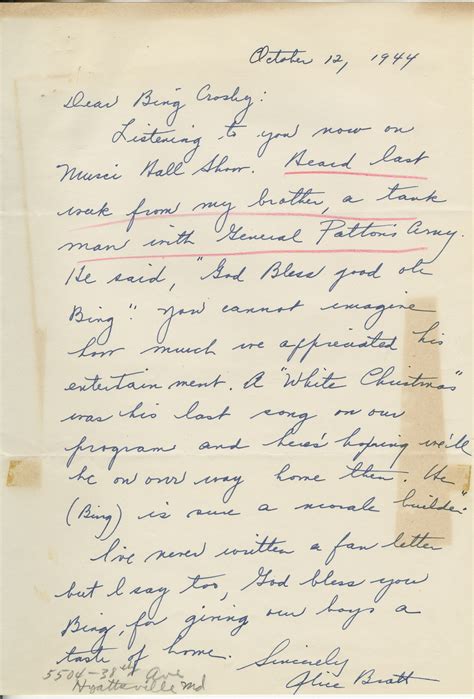 October 12, 1944
Dear Bing Crosby:
Listening to you now on
Musci Hall Show. Heard last
week from my brother, a tank
man with General Patton's Army.
He said, "God Bless good ole
Bing". You cannot imagine
how much we appreciated his
entertainment. A "White Christmas"
was his last song on our
program and here's hoping we'll
be on our way home then. He
(Bing) is sure a morale builder."
I've never written a fan letter
but I say too, God bless you
Bing, for giving our boys a
taste of home.
Sincerely
Alice Bratt
5504-38th Ave
Hyattsville Md